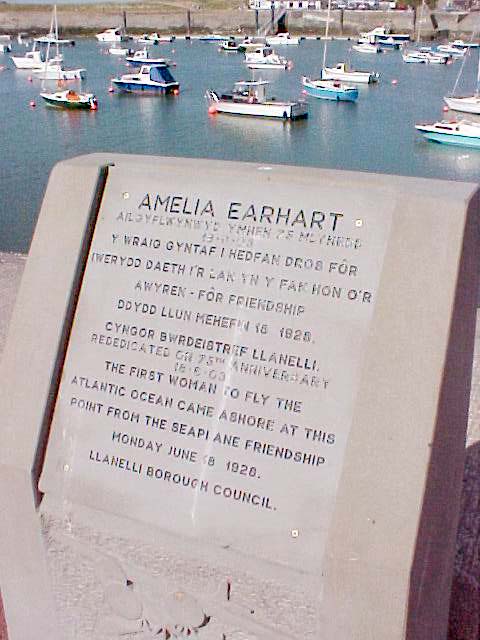 AMELIA EARHART
AILGYFLWYNWYD YMHEN 75 MLYNEDD
Y WRAIG GYNTAF I HEDFAN DROS FÔR
IWERYDD DAETH I'R LAN YN Y FAN HON O'R
AWYREN - FÔR FRIENDSHIP
DDYDD LLUN MEHEFIN 18 1928.
CYNGOR BWRDEISTREF LLANELLI.
REDEDICATED ON 75TH ANNIVERSARY
18·6·03
THE FIRST WOMAN TO FLY THE
ATLANTIC OCEAN CAME ASHORE AT THIS
POINT FROM THE SEAPLANE FRIENDSHIP
MONDAY JUNE 18 1928.
LLANELLI BOROUGH COUNCIL.